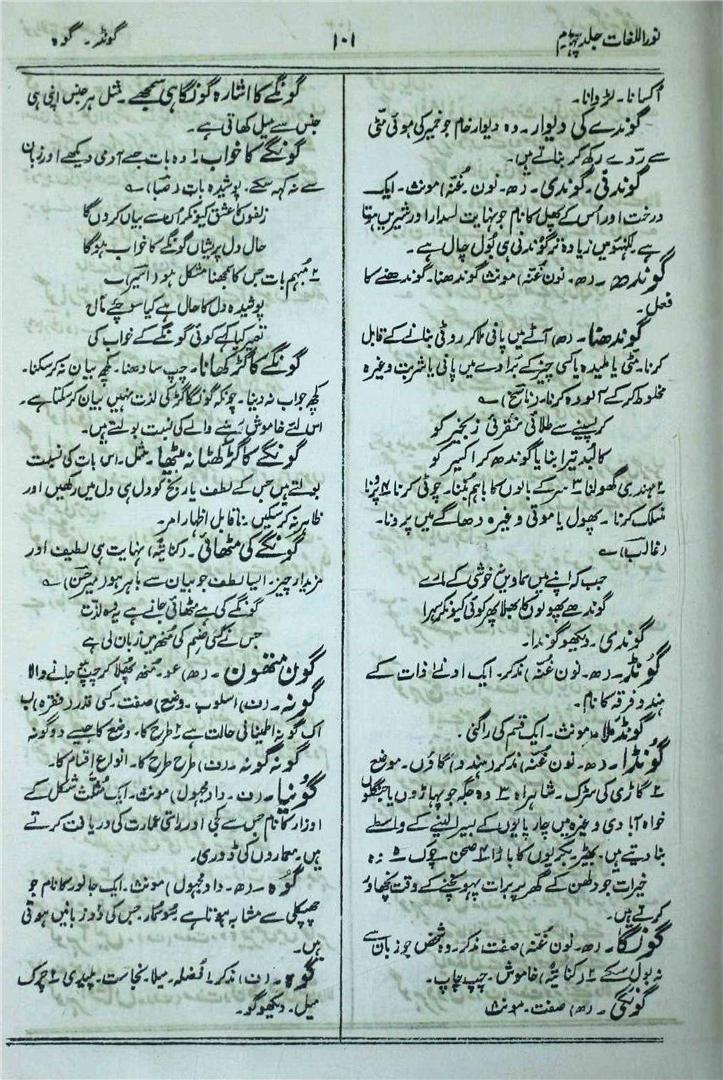 نور اللغات جلد چہارم
۱۰۱
گونڈ۔ گوہ
اُکسانا۔ لڑوانا۔
گوندے کی دیوار۔ وہ دیوار خام جو خمیر کی ہوئی مٹّی
سے ردّے رکھ کر بناتے ہیں۔
گوندنی۔ گوندی۔ (ھ۔ نون غنّہ) مونث۔ ایک
درخت اور اُس کے پھل کا نام جو نہایت لسدار اور شیریں ہوتا
ہے۔ لکھنؤ میں زیادہ تر گوندنی ہی بول چال ہے۔
گوندھ۔ (ھ۔ نون غنّہ) مونث گوندھنا۔ گوندھنے کا
فعل۔
گوندھنا۔ (ھ) آٹے میں پانی ملا کر روٹی بنانے کے قابل
کرنا۔ مٹی یا ملیدہ یا کسی چیز کے بُرادے میں پانی یا شربت وغیرہ
مخلوط کر کے آلودہ کرنا۔ (ناسخ) ؎
کر پسینے سے طلائی نقرئی زنجیر کو
کالبد تیرا بنا یا گوندھ کر اکسیر کو
۲ مہندی گھولنا ۳ سر کے بالوں کا باہم بُننا۔ چوٹی کرنا ۴ پرونا
منسلک کرنا۔ پھول یا موتی وغیرہ دھاگے میں پرونا۔
(غالبؔ) ؎
جب کہ اپنے میں سماویں نہ خوشی کے مارے
گوندھے پھولوں کا بھلا پھر کوئی کیونکر سہرا
گوندی۔ دیکھو گوندا۔
گونڈ۔ (ھ۔ نون غنّہ) مذکر۔ ایک ادنےٰ ذات کے
ہندو فرقہ کا نام۔
گونڈ ملار مونث۔ ایک قسم کی راگنی۔
گونڈا۔ (ھ۔ نون غنّہ) مذکر (ہندو) گاؤں۔ موضع
۲ گاڑی کی سڑک۔ شاہراہ ۳ وہ جگہ جو پہاڑوں یا جنگلوں
خواہ آبادی وغیرہ میں چارپایوں کے بسیرا لینے کے واسطے
بنا دیتے ہیں۔ بھیڑ بکریوں کا باڑا ۴ صحن۔ چوک ۵ وہ
خیرات جو دلھن کے گھر پر برات پہونچنے کے وقت نچھاور
کرتے ہیں۔
گونگا۔ (ھ۔ نون غنّہ) صفت مذکر۔ وہ شخص جو زبان سے
نہ بول سکے ۲ (کنایۃً) خاموش۔ چپ چاپ۔
گونگی۔ (ھ) صفت۔ مونث ۱۸
گونگے کا اشارہ گونگا ہی سمجھے۔ مثل ہر جنس اپنی ہی
جنس سے میل کھاتی ہے۔
گونگے کا خواب ۱ وہ بات جسے آدمی دیکھے اور زبان
سے نہ کہہ سکے۔ پوشیدہ بات (صبا) ؎
زلفوں کا عشق کیونکر اُس سے بیاں کروں گا
حال دل پریشاں گونگے کا خواب ہوگا
۲ مُبہم بات جس کا سمجھنا مشکل ہو (اسیر) ؎
پوشیدہ دل کا حال ہے کیا سوچیے مآل
تعبیر کیا کہے کوئی گونگے کے خواب کی
گونگے کا گُڑ کھانا۔ چپ سادھنا۔ کچھ بیان نہ کر سکنا۔
کچھ جواب نہ دینا۔ چونکہ گونگا گُڑ کی لذت نہیں بیان کر سکتا ہے۔
اس لئے خاموش رہنے والے کی نسبت بولتے ہیں۔
گونگے کا گُڑ کھٹّا نہ میٹھا۔ مثل۔ اس بات کی نسبت
بولتے ہیں جس کے لطف یا رنج کو دل ہی دل میں رکھیں اور
ظاہر نہ کر سکیں۔ ناقابل اظہار امر۔
گونگے کی مٹھائی۔ (کنایۃً) نہایت ہی لطیف اور
مزیدار چیز۔ ایسا لطف جو بیان سے باہر ہو (میر حسن) ؎
گونگے کی ہے مٹھائی جانے ہے وہ لذت
جس نے کسی صنم کی منھ میں زباں لی ہے
گون متھون۔ (ھ) عو۔ منھ پھلا کر چپ ہو جانے والا
گونہ۔ (ف) اسلوب۔ وضع) صفت۔ کسی قدر (فقرہ) اب
اک گونہ اطمینانی حالت ہے ۲ طرح کا۔ وضع کا جیسے دو گونہ
گونہ گونہ۔ (ف) طرح طرح کا۔ انواع اقسام کا۔
گونیا۔ (ف۔ واو مجہول) مونث۔ ایک مُثلّث شکل کے
اوزار کا نام جس سے کجی اور راستی عمارت کی دریافت کرتے
ہیں۔ معماروں کی ڈوری۔
گوہ۔ (ھ۔ واو مجہول) مونث۔ ایک جانور کا نام جو
چھپکلی سے مشابہ ہوتا ہے۔ سُوسمار۔ جس کی دو زبانیں ہوتی
ہیں۔
گوہ۔ (ف) مذکر ۱ فُضلہ۔ میلا۔ نجاست۔ پلیدی ۲ چرک
میل۔ دیکھو گو۔